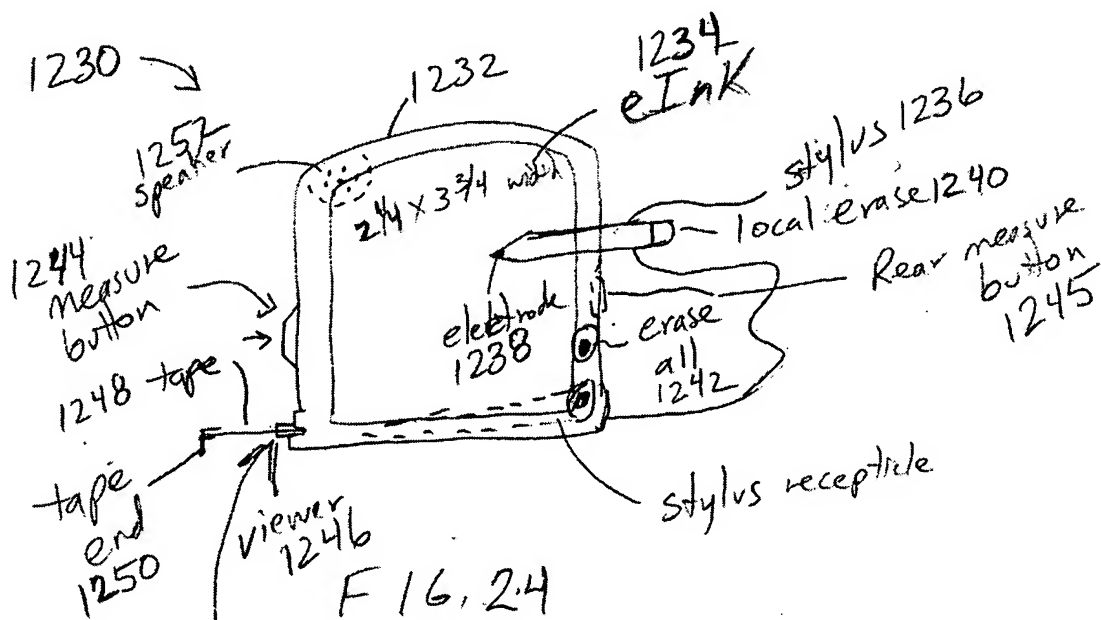 1230
1232
1234
eInK
1252
speaker
2 1/4 x 3 3/4 width
stylus 1236
local erase 1240
Rear measure
button
1245
1244
measure
button
eletrode
1238
erase
all
1242
1248 tape
tape
end
1250
viewer
1246
stylus recepticle
FIG. 24